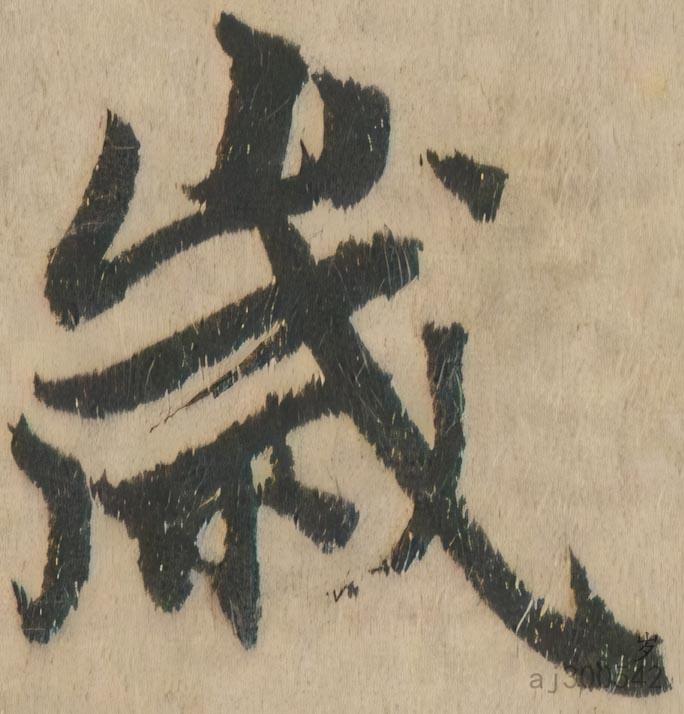 歲
岁
aj300542